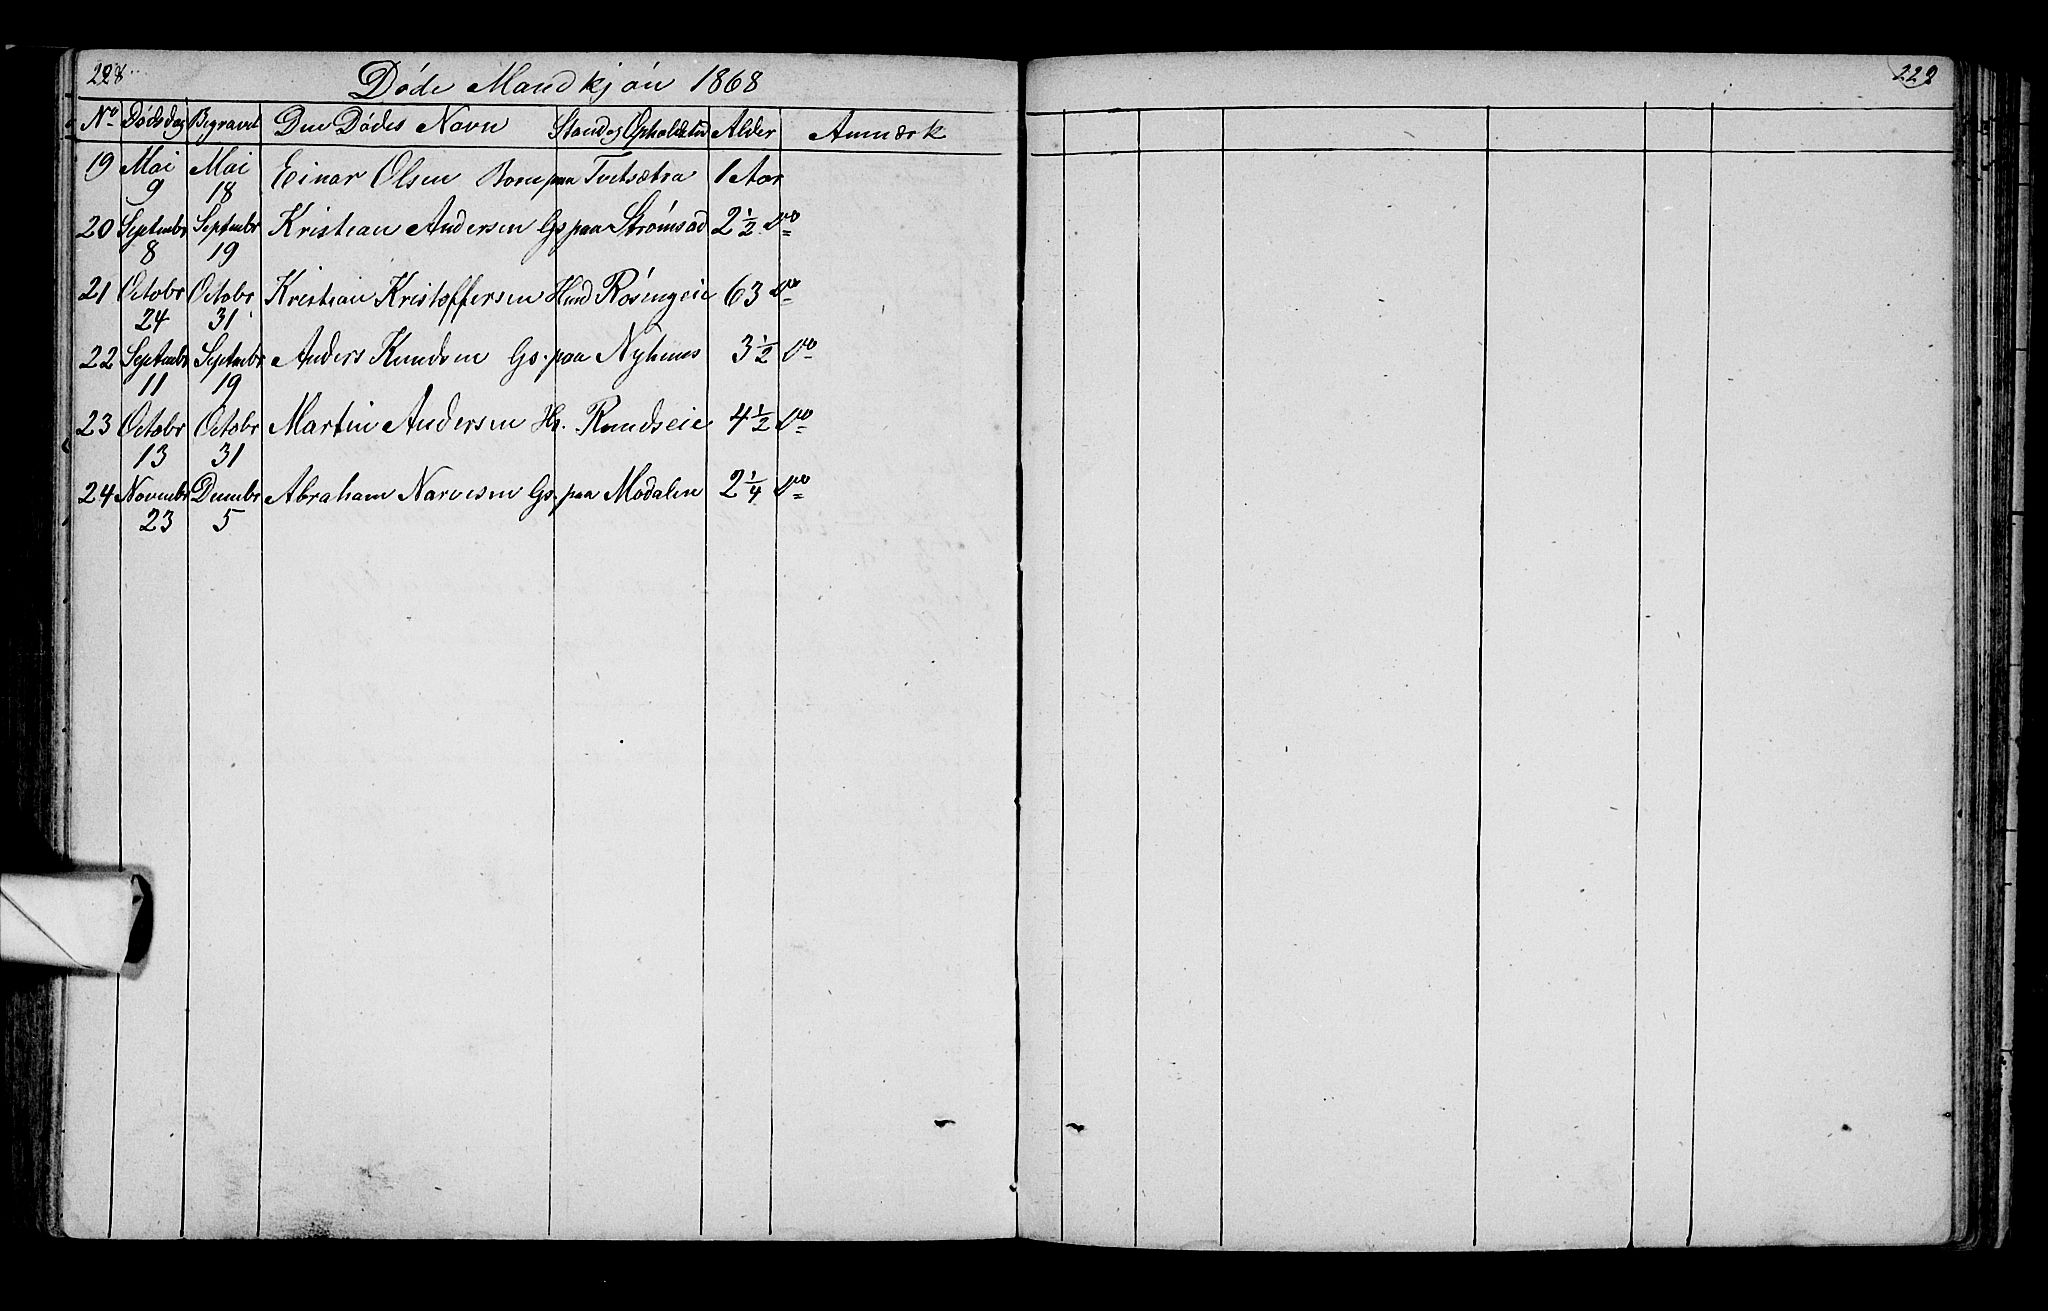 228
Døde Mandkjøn 1868
No Dødsdag Begravet Den Dødes Navn Stand og Opholdsted Alder Anmærk
19 Mai 9 Mai 18 Einar Olsen Barn paa Tvetsætra 1 Aar
20 Septembr 8 Septembr 19 Kristian Andersen Gs paa Strømsod 2 1/2 Do
21 Octobr 24 Octobr 31 Kristian Kristoffersen Hmd Rosingeie 63 Do
22 Septembr 11 Septembr 19 Anders Knudsen Gs. paa Nyhuus 3 1/2 Do
23 Octobr 13 Octobr 31 Martin Andersen Hs. Rundseie 4 1/2 Do
24 Novembr 23 Decembr 5 Abraham Narvesen Gs. paa Modalen 2 1/4 Do
229